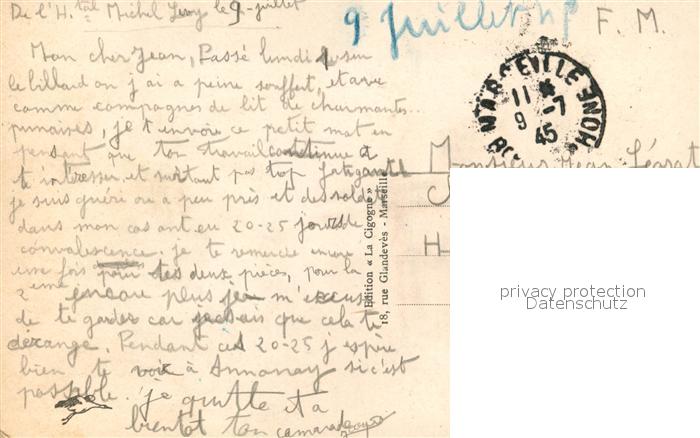 De l'H.tal Michel Levy le 9 - juillet
9 Juillet 45
F. M.
MARSEILLE
11 *
9 -7
45
RHONE
Mon cher Jean, Passé lundi sur
le billard on j ai a peine souffert, et avec
comme compagnes de lit de charmantes..
punaises, je t envoie ce petit mot en
pensant que ton travail continue a
te intresser et surtout pas trop fatigant
je suis guéri ou a peu près et des soldats
dans mon cas ont eu 20-25 jours de
convalescence. je te remercie encore
une fois pour tes deux pièces, pour la
2eme encore plus je m'excuse
de te garder car je sais que cela te
dérange. Pendant ces 20-25 j espère
bien te voir à Annonay si c'est
possible. je quitte et a
bientot ton camarade
Monsieur Jean
H
Edition « La Cigogne »
18, rue Glandevès - Marseille
privacy protection
Datenschutz